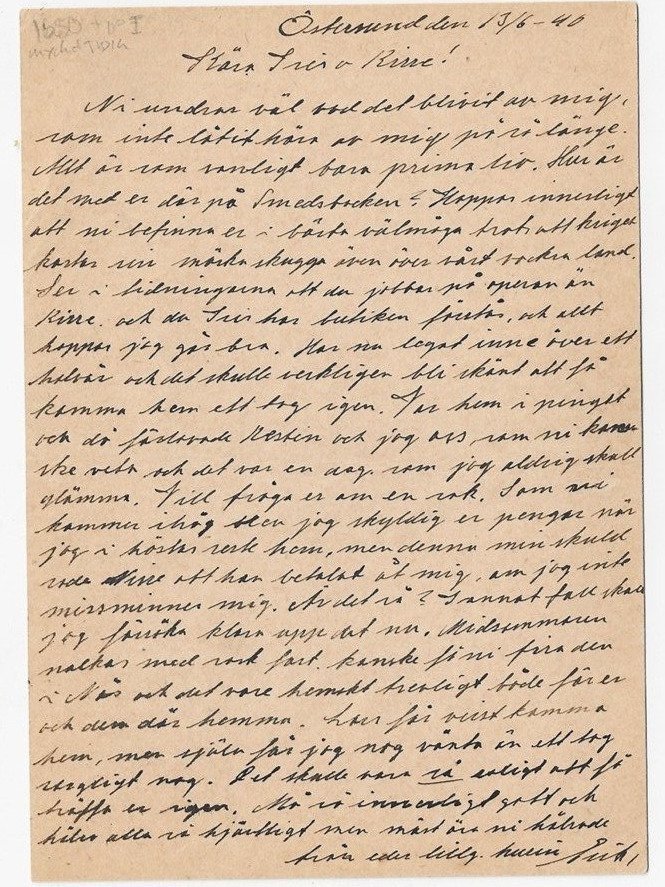 Östersund den 13/6-40
Kära Siri o Kirre!
Ni undrar väl vad det blivit av mig,
som inte låtit höra av mig på så länge.
Allt är som vanligt bara prima liv. Hur är
det med er där på Smedsbacken? Hoppas innerligt
att ni befinna er i bästa välmåga trots att kriget
kastar sin mörka skugga även över vårt vackra land.
Ser i tidningarna att du jobbar på operan än
Kirre. och du Siri har butiken förstås, och allt
hoppas jag går bra. Har nu legat inne över ett
halvår och det skulle verkligen bli skönt att få
komma hem ett tag igen. Var hem i pingst
och då förlovade Kerstin och jag oss, som ni kan
ske veta och det var en dag som jag aldrig skall
glömma. Vill fråga er om en sak. Som ni
kommer ihåg blev jag skyldig er pengar när
jag i höstas reste hem, men denna min skuld
sade att han betalat åt mig, om jag inte
missminner mig. Är det så? I annat fall skall
jag försöka klara upp det nu. Midsommaren
nalkas med rask fart, kanske få ni fira den
i Näs och det vore hemskt trevligt både för er
och dem där hemma. Lars får visst komma
hem, men själv får jag nog vänta än ett tag
sorgligt nog. Det skulle vara så roligt att få
träffa er igen. Må så innerligt gott och
hälsa alla så hjärtligt men mäst äro ni hälsade
från eder lillg. Erik,